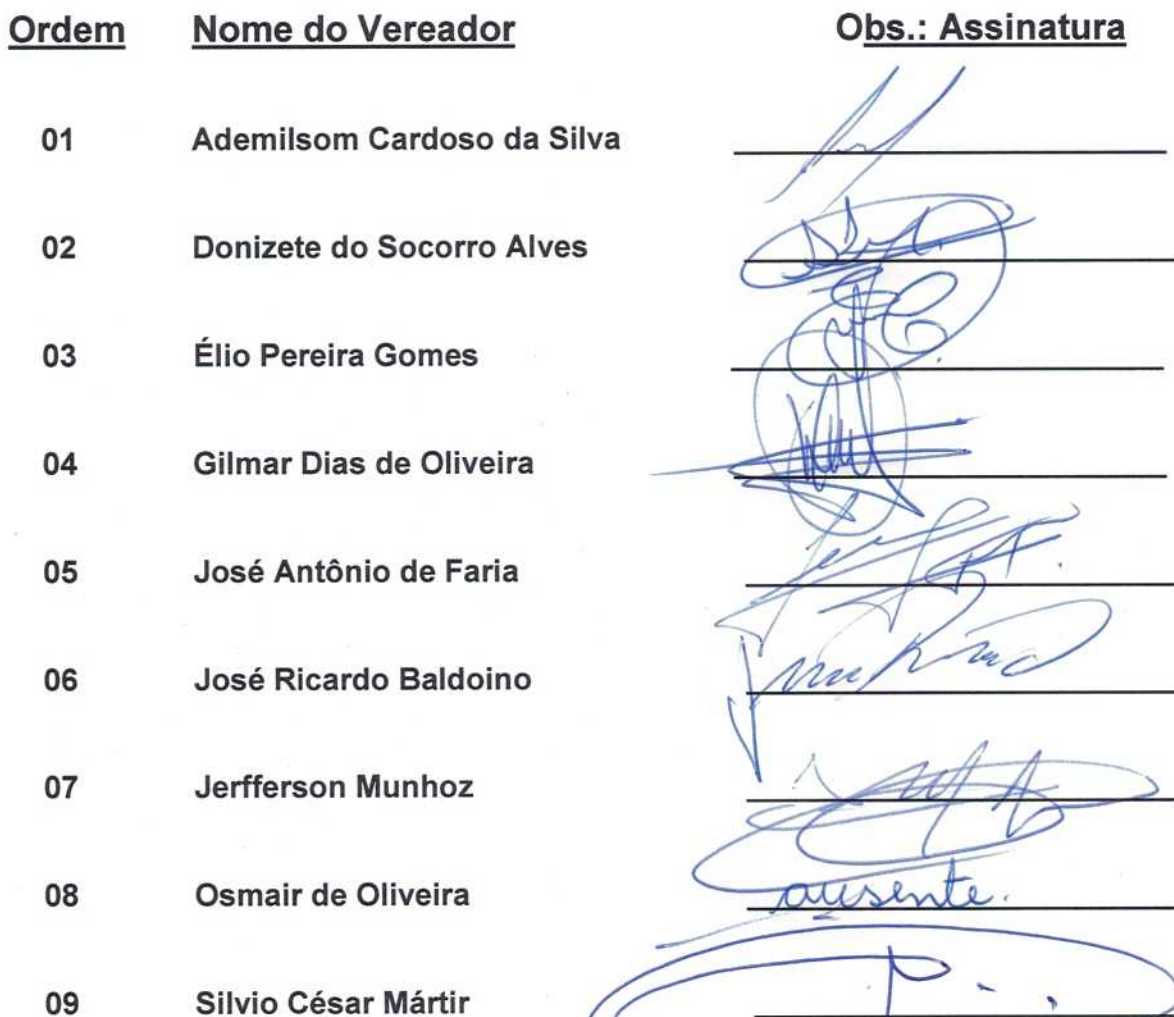 Ordem Nome do Vereador Obs.: Assinatura
01 Ademilsom Cardoso da Silva
02 Donizete do Socorro Alves
03 Élio Pereira Gomes
04 Gilmar Dias de Oliveira
05 José Antônio de Faria
06 José Ricardo Baldoino
07 Jerfferson Munhoz
08 Osmair de Oliveira ausente.
09 Silvio César Mártir